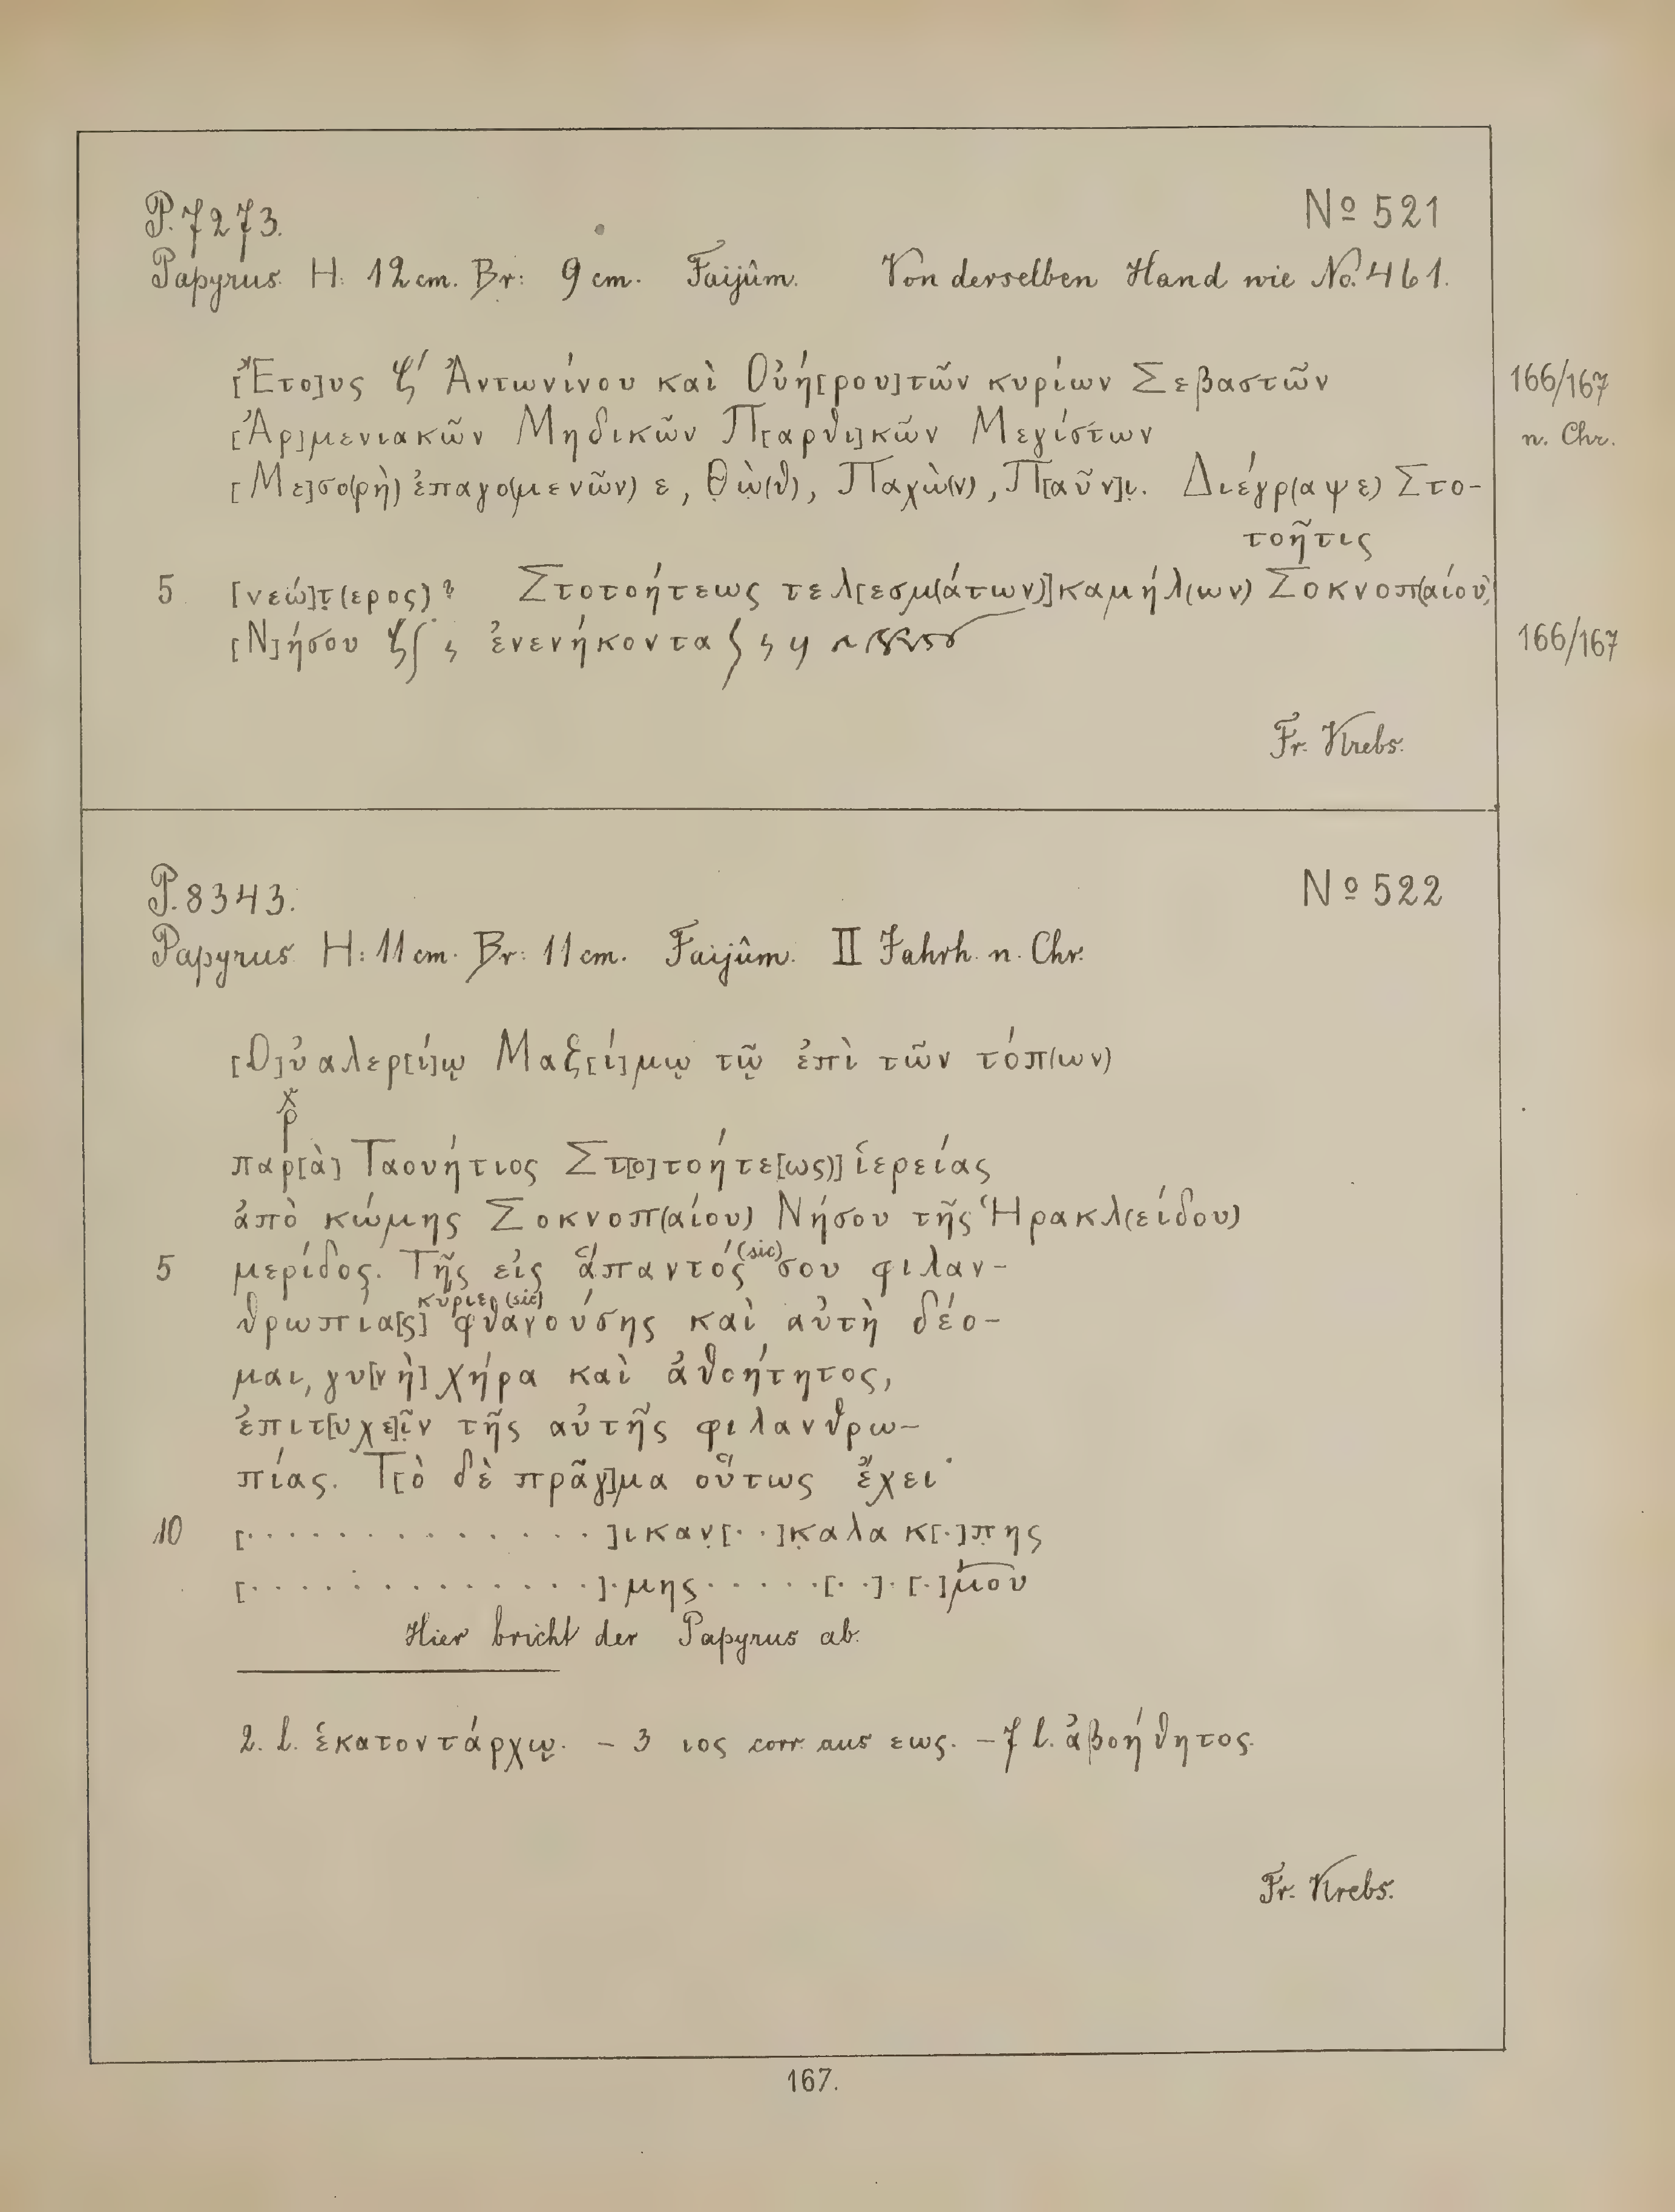 P. 7273.
No 521
Papyrus. H: 12 cm. Br: 9 cm. Faijûm. Von derselben Hand wie No. 461.
[Ἔτο]υς ζ´ Ἀντωνίνου καὶ Οὐή[ρου] τῶν κυρίων Σεβαστῶν
166/167
[Ἀρ]μενιακῶν Μηδικῶν Π[αρθι]κῶν Μεγίστων
n. Chr.
[Με]σο(ρὴ) ἐπαγο(μενῶν) ε, Θ̣ὼ(θ), Παχὼ(ν), Π[αῦν]ι̣. Διέγρ(αψε) Στο-
τοῆτις
5 [νεώ]τ̣(ερος)? Στοτοήτεως τελ[εσμ(άτων)] καμήλ(ων) Σοκνοπ(αίου)
[Ν]ήσου ζ ἐνενήκοντα
166/167
Fr. Krebs.
P. 8343.
No 522
Papyrus H: 11 cm. Br: 11 cm. Faijûm. II Jahrh. n. Chr.
[Ο]ὐαλερ[ί]ῳ Μαξ[ί]μῳ τῷ ἐπὶ τῶν τόπ(ων)
χ
ρ
παρ[ὰ] Ταουήτιος Στ[ο]τοήτε[ως)] ἱερείας
ἀπὸ κώμης Σοκνοπ(αίου) Νήσου τῆς Ἡρακλ(είδου)
5 μερίδος. Τῆς εἰς ἅπαντός (sic) σου φιλαν-
κύριερ (sic)
θρωπία[ς] φθανούσης καὶ αὐτὴ δέο-
μαι, γυ[νὴ] χήρα καὶ ἀθοήτητος,
ἐπιτ[υχε]ῖ̣ν τῆς αὐτῆς φιλανθρω-
πίας. Τ[ὸ δὲ πρᾶγ]μα οὕτως ἔχει·
10 [· · · · · · · · · · · · · ·]ικαν̣[· ·]κ̣αλα κ[·]π̣ης
[· · · · · · · · · · · · · ·]· μης · · · · · [· ·] · [·]μου
Hier bricht der Papyrus ab.
2. l. ἑκατοντάρχῳ. – 3 ιος corr. aus εως. – 7 l. ἀβοήθητος.
Fr. Krebs.
167.